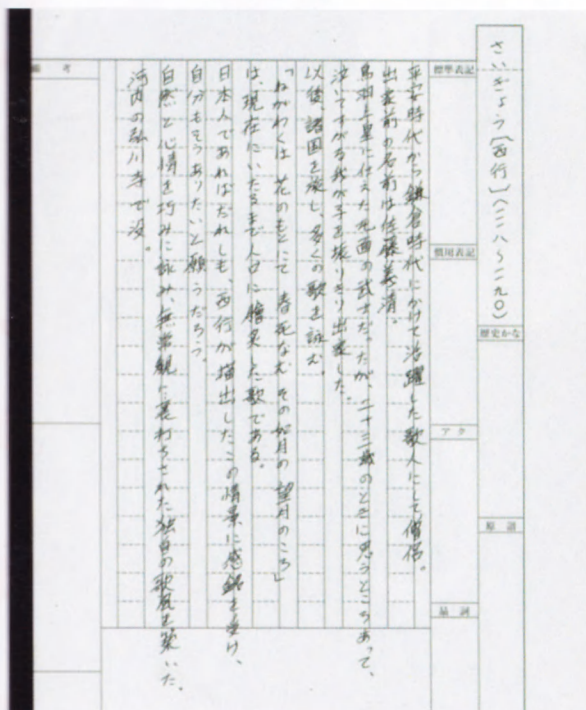 さいぎょう【西行】(一一一八〜一一九〇)
標準表記
慣用表記
歴史かな
アク
原語
品詞
平安時代から鎌倉時代にかけて活躍した歌人にして僧侶。
出家前の名前は佐藤義清。
鳥羽上皇に仕えた北面の武士だったが、二十三歳のときに思うところあって、
泣いてすがる我が子を振りきり出家した。
以後、諸国を旅し、多くの歌を詠む。
「ねがわくは 花のもとにて 春死なむ その如月の 望月のころ」
は、現在にいたるまで人口に膾炙した歌である。
日本人であればだれしも、西行が描出したこの情景に感銘を受け、
自分もそうありたいと願うだろう。
自然と心情を巧みに詠み、無常観に裏打ちされた独自の歌風を築いた。
河内の弘川寺で没。
備考